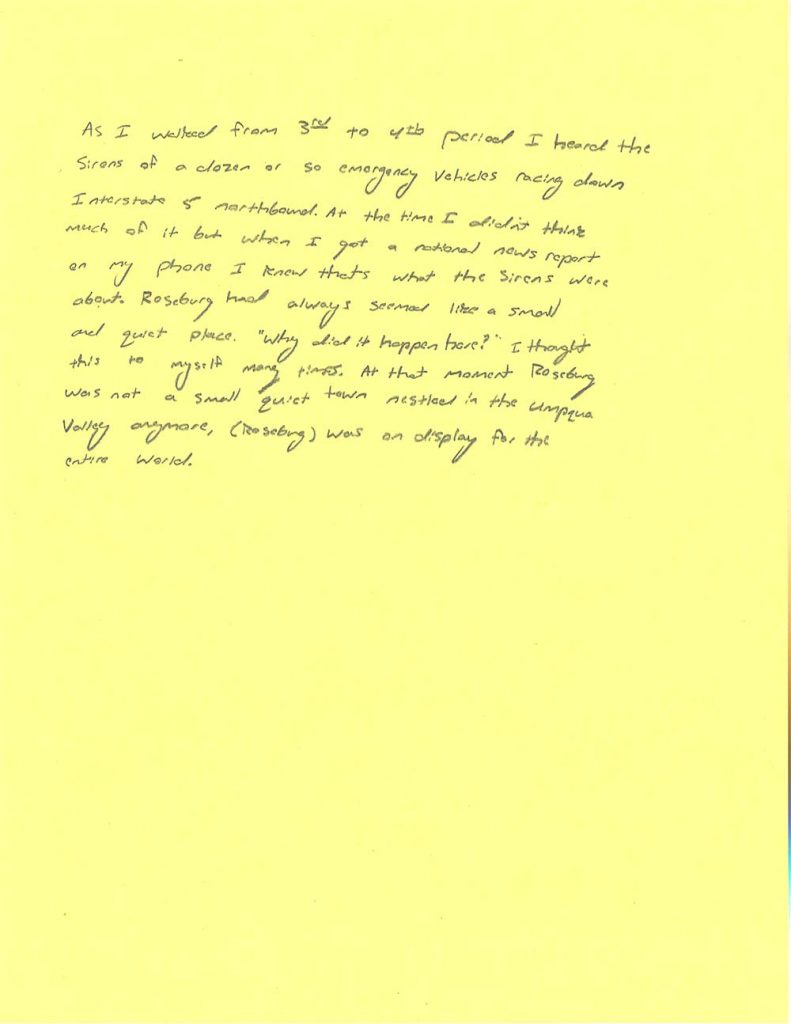 As I walked from 3rd to 4th period I heard the
Sirens of a dozen or so emergency vehicles racing down
Interstate 5 northbound. At the time I didn't think
much of it but when I got a national news report
on my phone I knew thats what the sirens were
about. Roseburg had always seemed like a small
and quiet place. "Why did it happen here?" I thought
this to myself many times. At that moment Roseburg
was not a small quiet town nestled in the Umpqua
Valley anymore, (Roseburg) was on display for the
entire world.